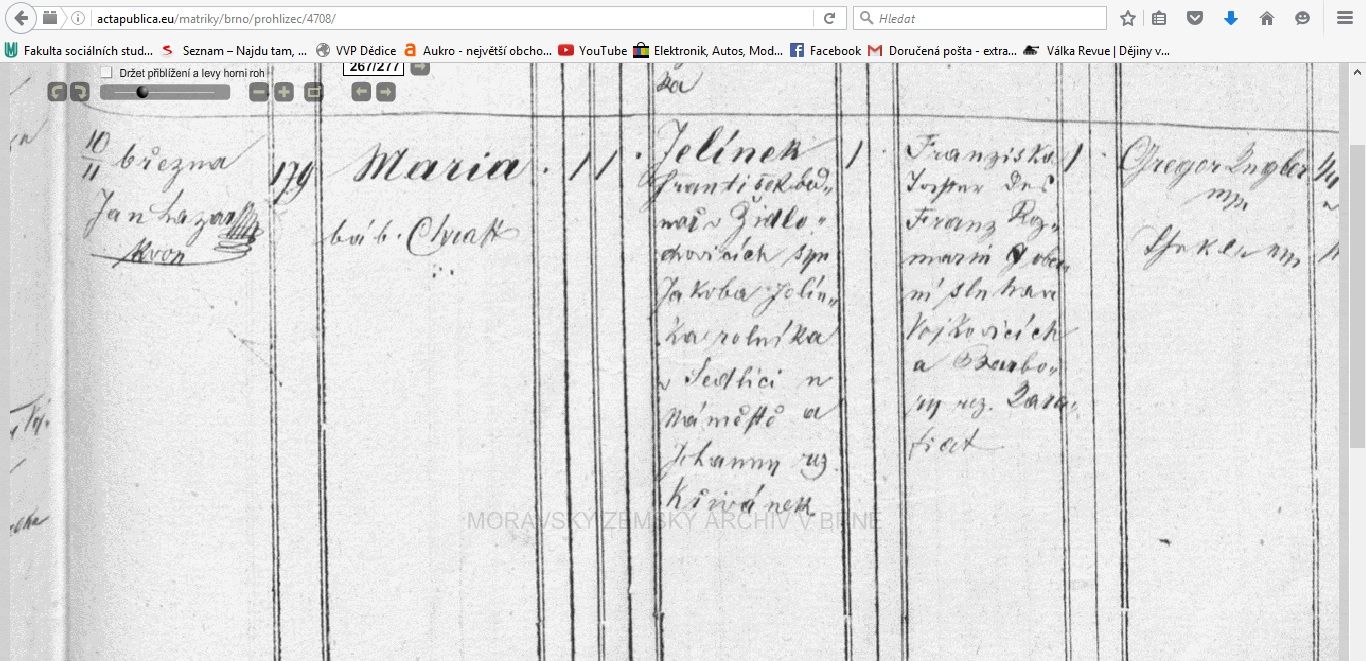 actapublica.eu/matriky/brno/prohlizec/4708/
Hledat
Fakulta sociálních stud...
Seznam – Najdu tam, ...
VVP Dědice
Aukro - největší obcho...
YouTube
Elektronik, Autos, Mod...
Facebook
Doručená pošta - extra...
Válka Revue | Dějiny v...
Držet přiblížení a levy horni roh
267/277
ka
10
11
března
Jan Lazar
179
Maria
báb.
1 1
Jelínek
František bed„
nář v Židlo„
chovicích syn
Jakoba Jelín„
ka rolníka
v Sedlici n
Náměště a
Johanny roz.
Křivánek
1
Franziska
Tochter des
Franz Roz„
marin
Vojkovicích
a Barbo„
ry roz.
1
Gregor Ingler
mp
MORAVSKÝ ZEMSKÝ ARCHIV V BRNĚ